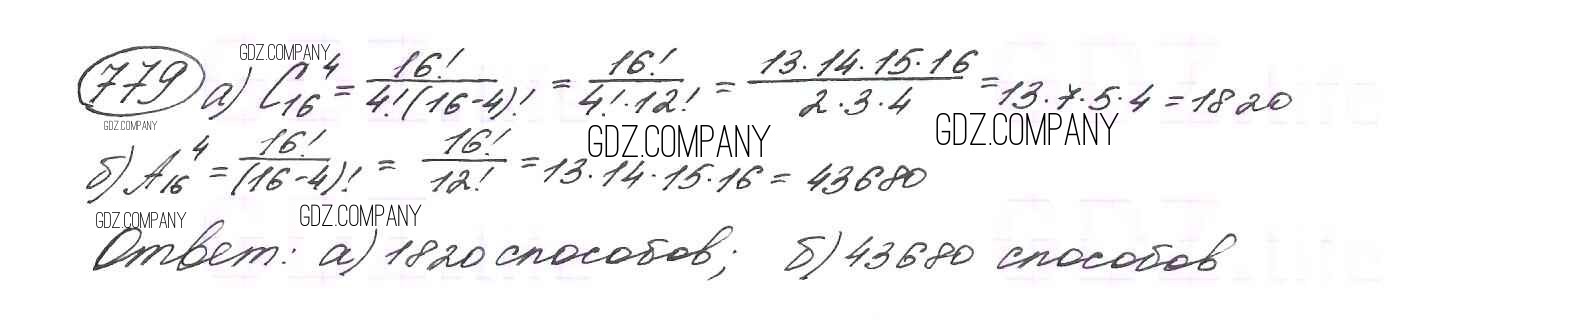 GDZ.COMPANY
779 а) C₁₆⁴ = 16!/4!(16-4)! = 16!/4!·12! = 13·14·15·16/2·3·4 = 13·7·5·4 = 1820
GDZ.COMPANY GDZ.COMPANY GDZ.COMPANY
б) A₁₆⁴ = 16!/(16-4)! = 16!/12! = 13·14·15·16 = 43680
GDZ.COMPANY GDZ.COMPANY
Ответ: а) 1820 способов; б) 43680 способов